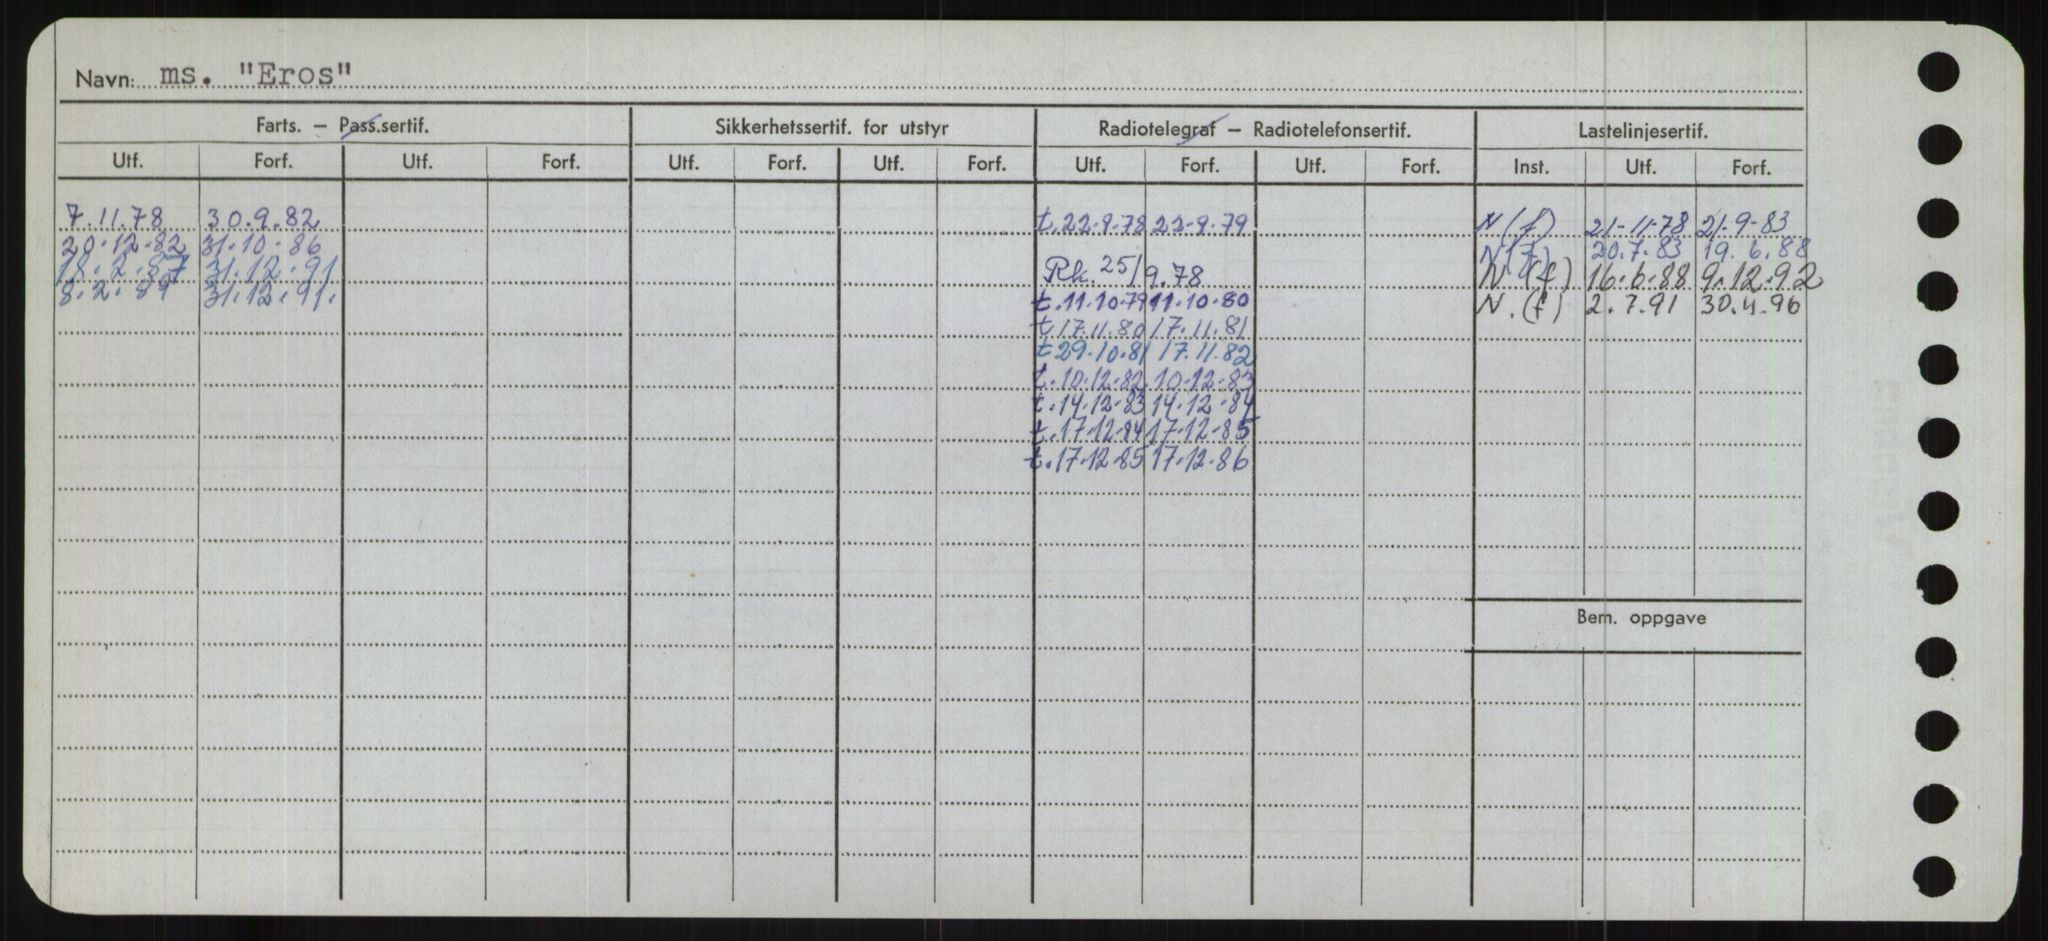 Navn: ms. "Eros"
Farts. — Pass.sertif. Sikkerhetssertif. for utstyr Radiotelegraf — Radiotelefonsertif. Lastelinjesertif.
Utf. Forf. Utf. Forf. Utf. Forf. Utf. Forf. Utf. Forf. Utf. Forf. Inst. Utf. Forf.
7.11.78 30.9.82 t.22-9-78 22-9-79 N(f) 21-11-78 21-9-83
20-12-82 31-10-86 N(f) 20.7.83 19.6.88
18.2.87 31.12.91 Rk. 25/9.78 N(f) 16.6.88 9.12.92
8.2.89 31.12.91. t.11.10.79 11.10.80 N.(f) 2.7.91 30.4.96
t.17.11.80 17.11.81
t 29.10.81 17.11.82
t.10.12.82 10-12-83
t.14.12-83 14.12-84
t.17-12-84 17-12-85
t.17.12.85 17.12.86
Bem. oppgave